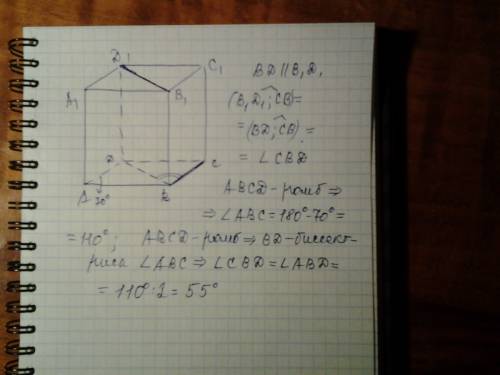 D1 C1
A1 B1
D C
A 70° B
BD || B₁D₁
(B₁D₁;CB)=
=(BD;CB)=
=∠CBD
ABCD-ромб⇒
⇒∠ABC=180°-70°=
=110°; ABCD-ромб⇒BD-биссект-
риса ∠ABC⇒∠CBD=∠ABD=
=110°:2=55°